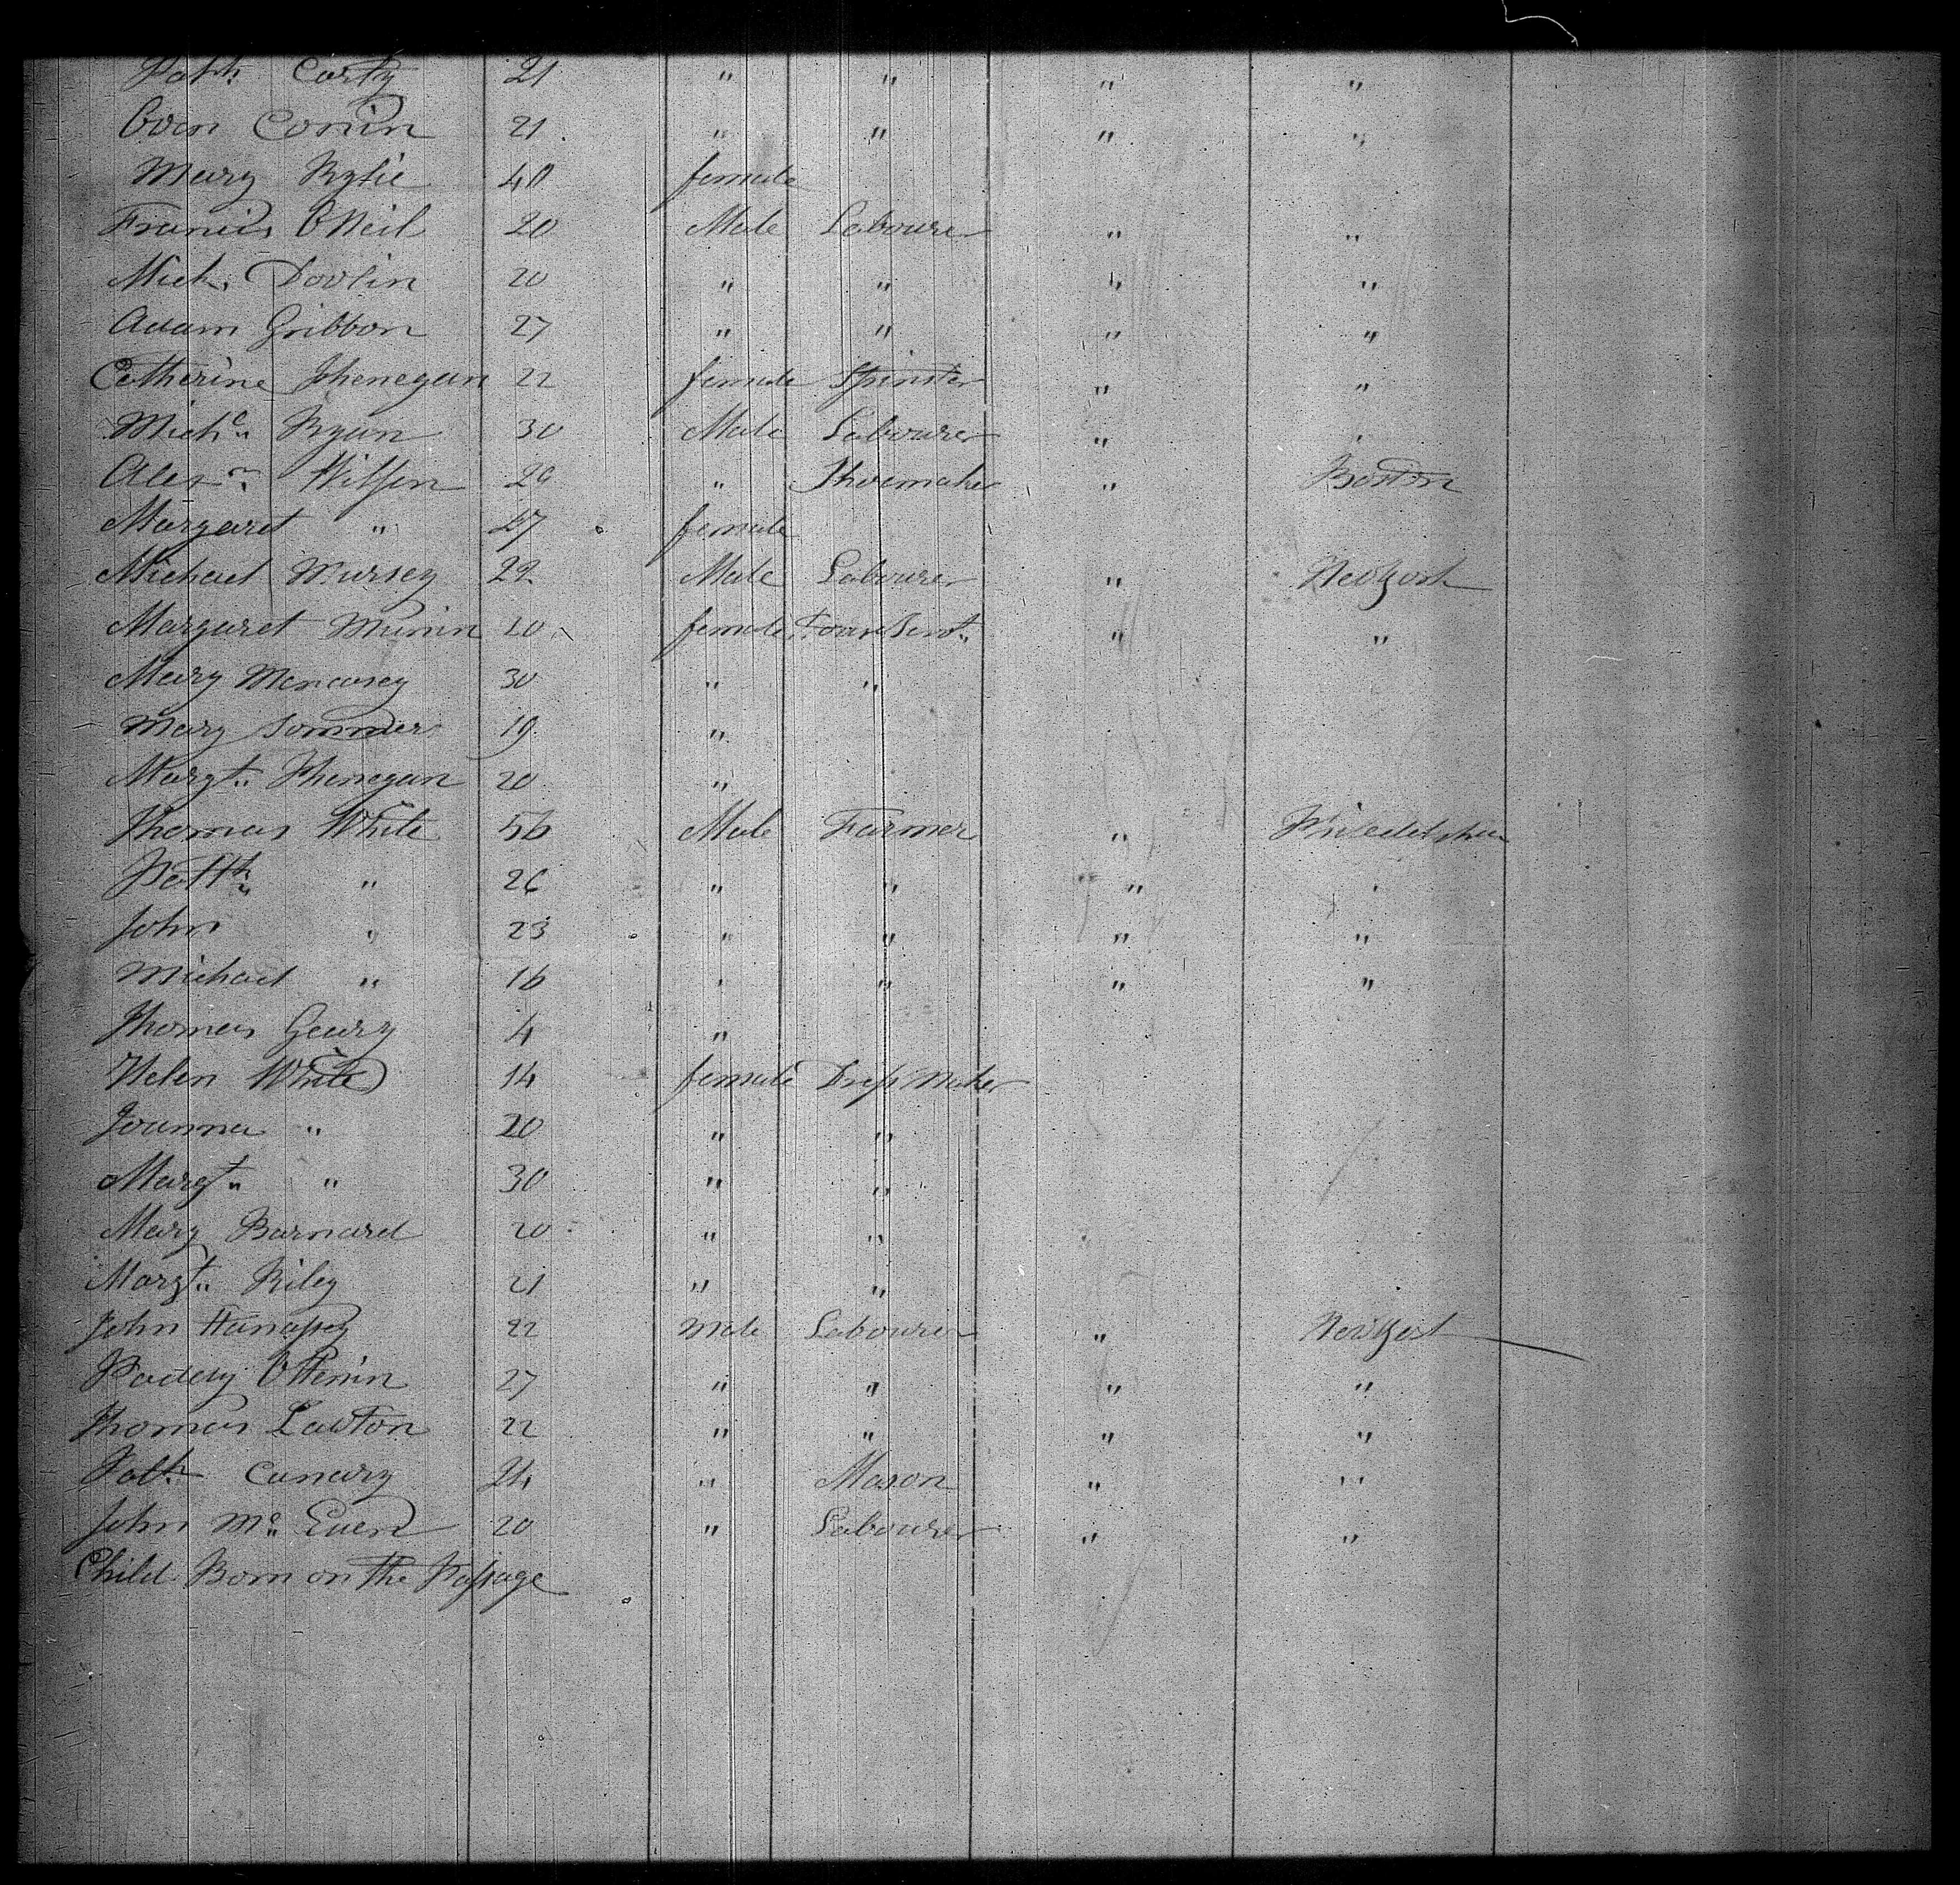 Patk. Carty 21 " " " "
Owen Conin 21 " " " "
Mary Rylie 40 female
Francis ONeil 20 Male Labourer " "
Mich. Doolin 20 " " " "
Adam Gribbon 27 " " " "
Catherine Shenegan 22 female Spinster " "
Michl. Ryan 30 Male Labourer " "
Alexr. Wilson 29 " Shoemaker " Boston
Margaret " 27 female
Michael Mursey 22 Male Labourer " New York
Margaret Munin 20 female " "
Mary Menausey 30 " "
Mary Sommers 19 "
Margt. Shenegan 20 "
Thomas White 56 Male Farmer "
Patk. " 26 " " " "
John " 23 " " " "
Michael " 16 " " " "
Thomas Geary 4 "
Helen White 14 female Dress Maker
Joanna " 20 " "
Margt. " 30 " "
Mary Barnard 20 " "
Margt. Riley 21 " "
John Hanassy 22 Male Labourer " New York
Paddy 27 " " " "
Thomas Lawton 22 " " " "
Patk. Canary 24 " Mason " "
John Mc. Euen 20 " Labourer " "
Child Born on the Passage